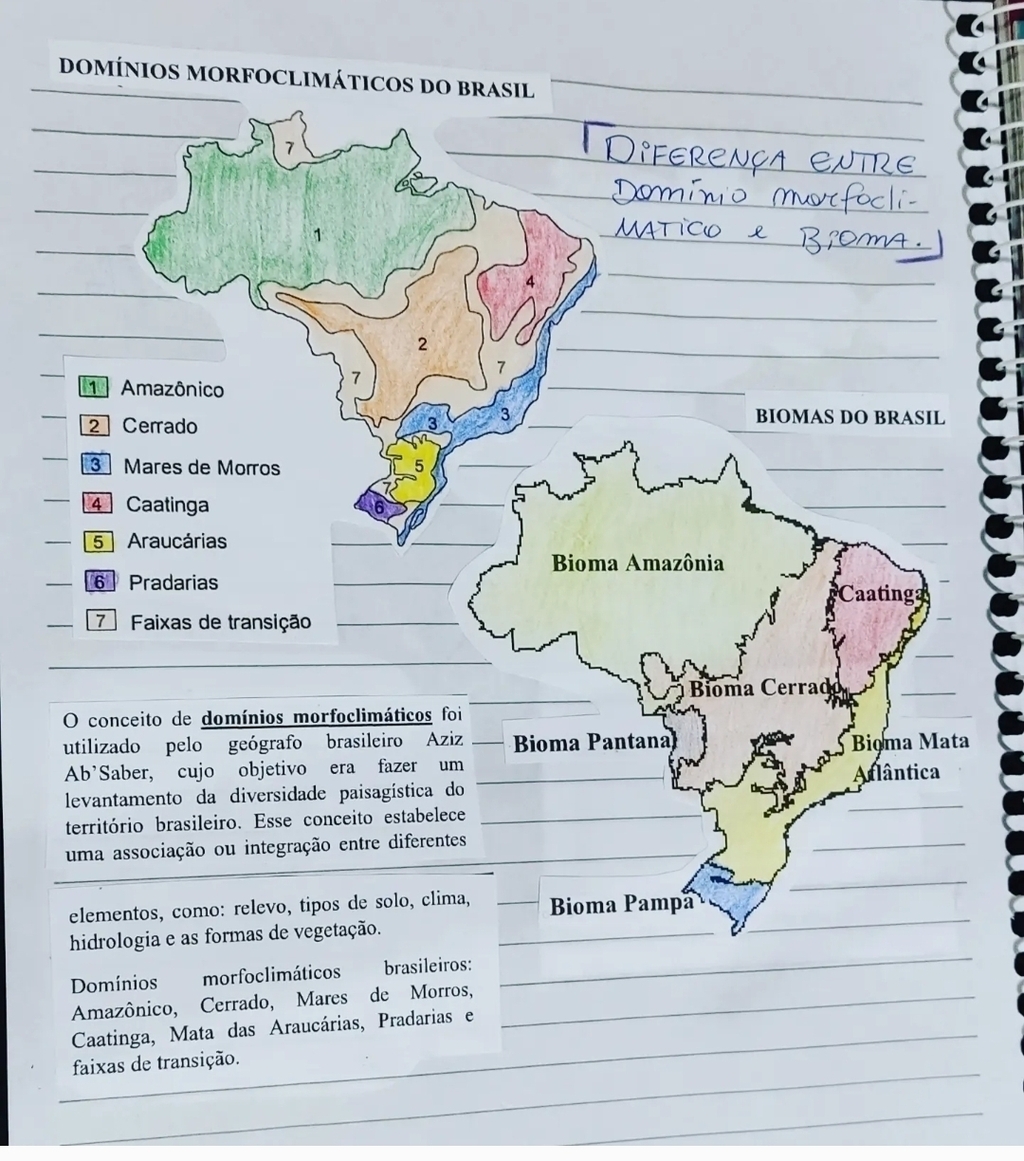 DOMÍNIOS MORFOCLIMÁTICOS DO BRASIL
DIFERENÇA ENTRE
Domínio morfocli-
MATICO e BIOMA.
7
1
4
2
7
7
3
3
5
7
6
1 Amazônico
2 Cerrado
3 Mares de Morros
4 Caatinga
5 Araucárias
6 Pradarias
7 Faixas de transição
BIOMAS DO BRASIL
Bioma Amazônia
Caatinga
Bioma Cerrado
Bioma Pantanal
Bioma Mata
Atlântica
Bioma Pampa
O conceito de domínios morfoclimáticos foi
utilizado pelo geógrafo brasileiro Aziz
Ab’Saber, cujo objetivo era fazer um
levantamento da diversidade paisagística do
território brasileiro. Esse conceito estabelece
uma associação ou integração entre diferentes
elementos, como: relevo, tipos de solo, clima,
hidrologia e as formas de vegetação.
Domínios morfoclimáticos brasileiros:
Amazônico, Cerrado, Mares de Morros,
Caatinga, Mata das Araucárias, Pradarias e
faixas de transição.